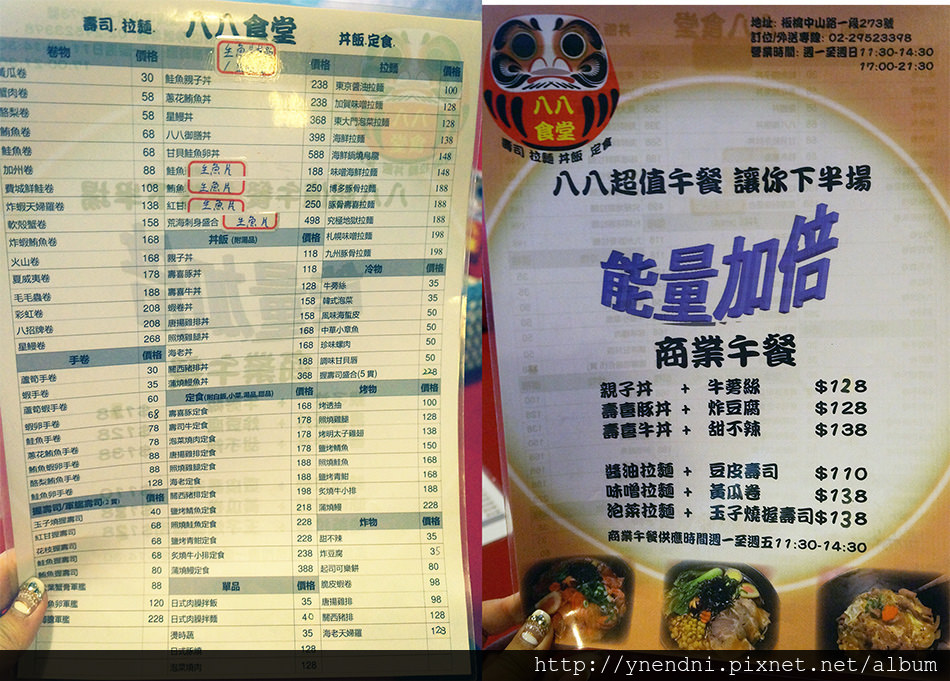 壽司. 拉麵.
八八食堂
丼飯.定食.
卷物 價格
瓜卷 30
蟹肉卷 58
酪梨卷 58
鮪魚卷 68
鮭魚卷 68
加州卷 88
費城鮮鮭卷 108
炸蝦天婦羅卷 138
軟殼蟹卷 158
炸蝦鮪魚卷 168
火山卷 168
夏威夷卷 178
毛毛蟲卷 188
彩虹卷 208
八招牌卷 208
星鰻卷 268
手卷 價格
蘆筍手卷 30
蝦手卷 35
蘆筍蝦手卷 60
蝦卵手卷 68
鮭魚手卷 78
蔥花鮪魚手卷 78
鮪魚蝦卵手卷 88
酪梨鮪魚手卷 88
鮭魚卵手卷 128
握壽司/軍艦壽司(2貫) 價格
玉子燒握壽司 40
紅甘握壽司 68
花枝握壽司 68
鮭魚握壽司 68
鮪魚握壽司 80
蟹膏軍艦 88
魚卵軍艦 120
軍艦 228
價格
鮭魚親子丼 238
蔥花鮪魚丼 238
星鰻丼 368
八八御膳丼 398
甘貝鮭魚卵丼 588
鮭魚 生魚片 188
鮪魚 生魚片 250
紅甘 生魚片 250
荒海刺身盛合 生魚片 498
丼飯 (附湯品) 價格
親子丼 118
壽喜豚丼 118
壽喜牛丼 128
蝦卷丼 158
唐揚雞排丼 158
照燒雞腿丼 168
海老丼 168
關西豬排丼 188
蒲燒鰻魚丼 368
定食 (附白飯,小菜,湯品,甜品) 價格
壽喜豚定食 168
壽司牛定食 178
泡菜燒肉定食 178
唐揚雞排定食 188
照燒雞腿定食 188
海老定食 198
關西豬排定食 198
鹽烤鯖魚定食 218
照燒鮭魚定食 228
鹽烤青魽定食 228
炙燒牛小排定食 238
蒲燒鰻定食 388
單品 價格
日式肉臊拌飯 35
日式肉臊拌麵 40
燙時蔬 35
日式豚燒 128
泡菜燒肉 128
拉麵 價格
東京醬油拉麵 100
加賀味噌拉麵 128
東大門泡菜拉麵 128
海鮮拉麵 138
海鮮鍋燒烏龍 148
味噌海鮮拉麵 148
博多豚骨拉麵 188
豚骨壽喜拉麵 188
究極地獄拉麵 188
札幌味噌拉麵 198
九州豚骨拉麵 198
冷物 價格
牛蒡絲 35
韓式泡菜 35
風味海蜇皮 50
中華小章魚 50
珍味螺肉 50
調味甘貝唇 50
握壽司盛合(5貫) 228
烤物 價格
烤透抽 100
照燒雞腿 128
烤明太子雞翅 138
鹽烤鯖魚 150
照燒鮭魚 168
鹽烤青魽 168
炙燒牛小排 188
蒲燒鰻 228
炸物 價格
甜不辣 35
炸豆腐 35
起司可樂餅 80
脆皮蝦卷 98
唐揚雞排 98
關西豬排 128
海老天婦羅 128
地址: 板橋中山路一段273號
訂位/外送專線: 02-29523398
營業時間: 週一至週日11:30-14:30
17:00-21:30
八八
食堂
壽司 拉麵 丼飯 定食
八八超值午餐 讓你下半場
能量加倍
商業午餐
親子丼 + 牛蒡絲 $128
壽喜豚丼 + 炸豆腐 $128
壽喜牛丼 + 甜不辣 $138
醬油拉麵 + 豆皮壽司 $110
味噌拉麵 + 黃瓜卷 $138
泡菜拉麵 + 玉子燒握壽司 $138
商業午餐供應時間週一至週五11:30-14:30
http://ynendni.pixnet.net/album